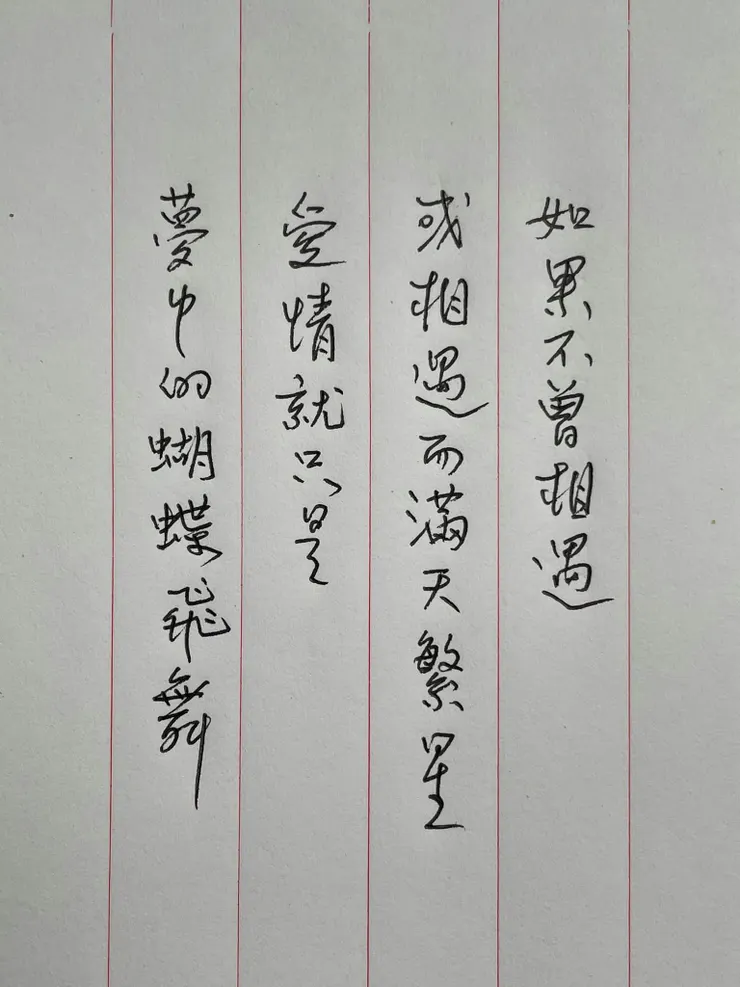 如果不曾相遇
或相遇而滿天繁星
愛情就只是
夢中的蝴蝶飛舞